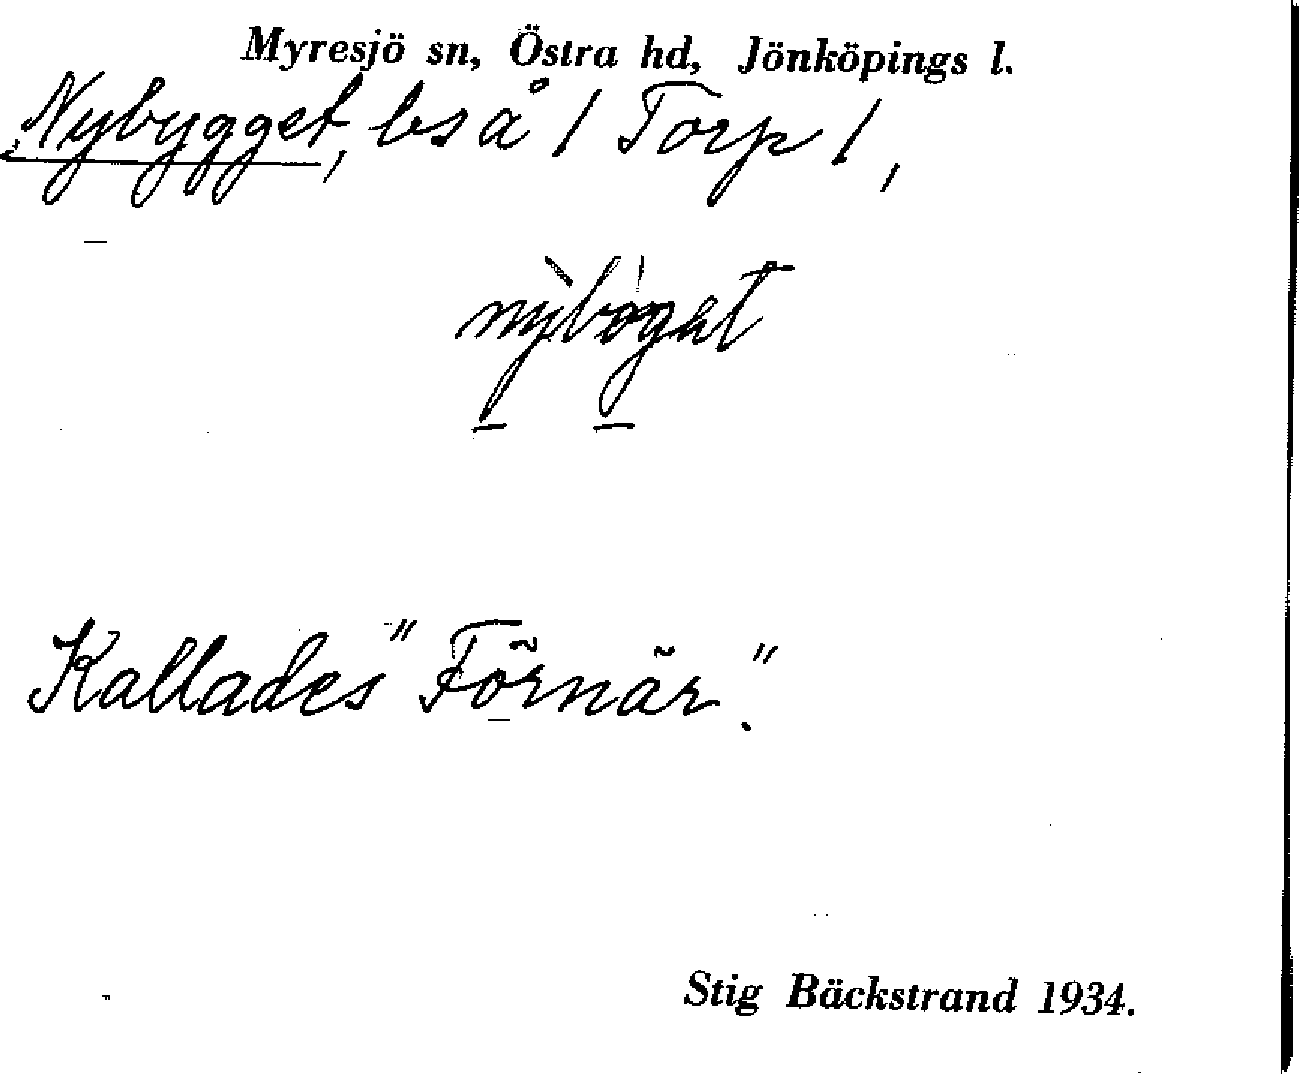 Myresjö sn, Östra hd, Jönköpings l.
Nybygget, ls å 1 Torp 1,
nỳbøgət
Kallades "Förnär".
Stig Bäckstrand 1934.